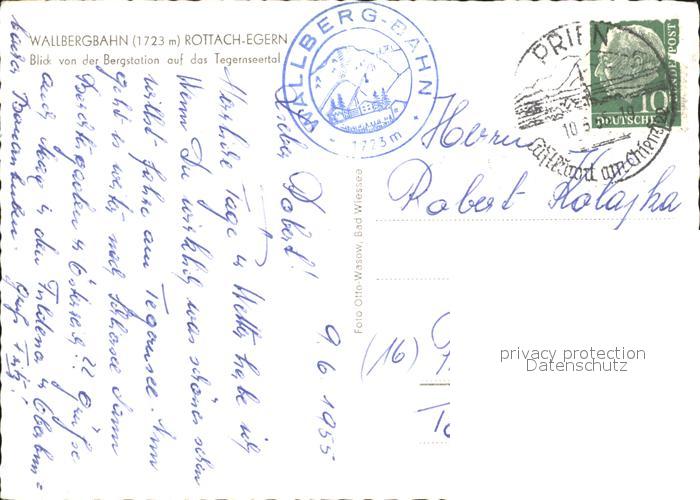 WALLBERGBAHN (1723 m) ROTTACH-EGERN
Blick von der Bergstation auf das Tegernseertal
WALLBERG-BAHN
1723m
PRIEN
Luftkurort am Chiemsee
DEUTSCHE BUNDESPOST
10
Foto Otto-Wasow, Bad Wiessee
9.6.1955
Lieber Robert!
Herrliche Tage u Wetter habe ich
Wenn Du wirklich was schönes sehen
willst fahre am Tegernsee. Nun
geht es weiter nach Schliersee dann
Berchtesgaden u
auch
Gruß Fritz!
Herrn
Robert Kolajka
(16)
privacy protection
Datenschutz